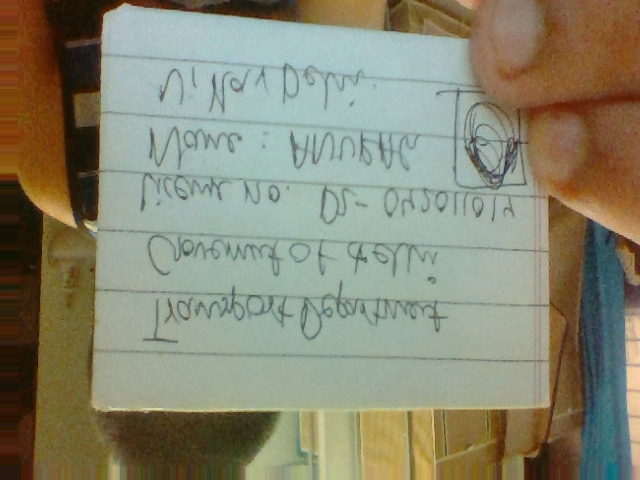 Transport Department
Goverment of delhi
License No. DL-042011014
Name : ANURAG
Delhi